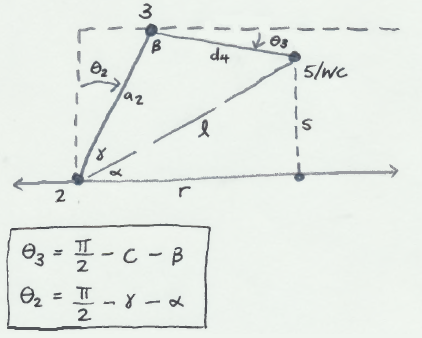 3
θ₂
β
θ₃
d₄
5/WC
a₂
l
s
γ
α
2
r
θ₃ = π/2 - C - β
θ₂ = π/2 - γ - α